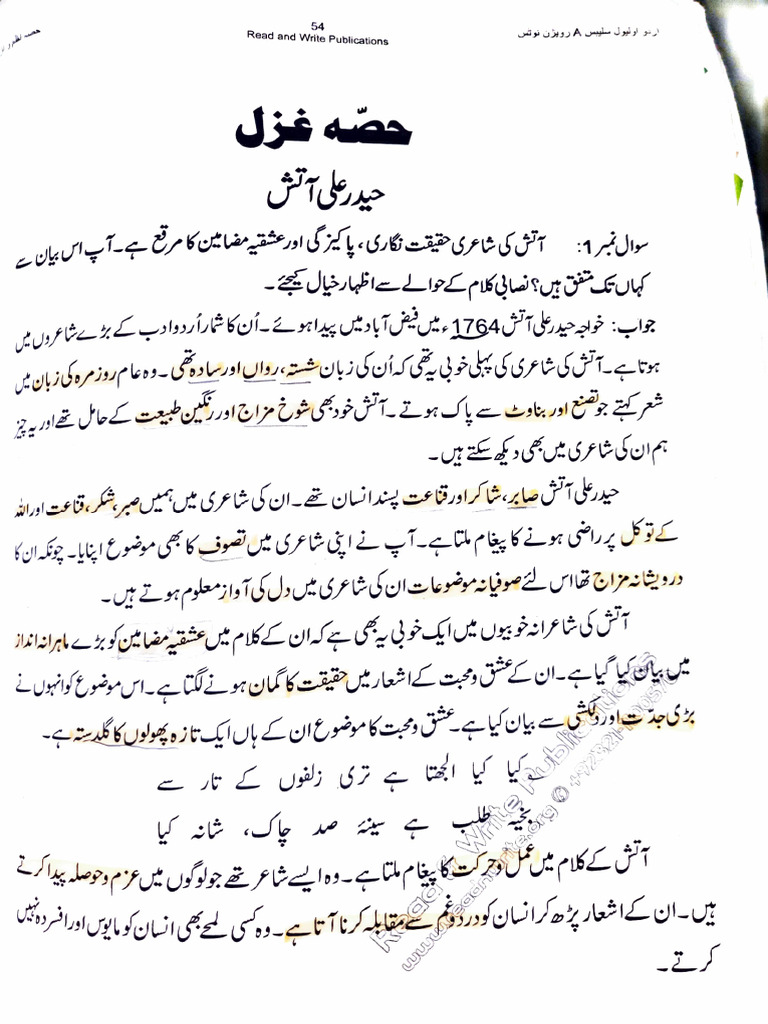 اردو اولیول سلیبس A رویژن نوٹس
54
Read and Write Publications
حصہ
حصّہ غزل
حیدر علی آتش
سوال نمبر 1: آتش کی شاعری حقیقت نگاری، پاکیزگی اور عشقیہ مضامین کا مرقع ہے۔ آپ اس بیان سے
کہاں تک متفق ہیں؟ نصابی کلام کے حوالے سے اظہار خیال کیجئے۔
جواب: خواجہ حیدر علی آتش 1764ء میں فیض آباد میں پیدا ہوئے۔ اُن کا شمار اُردو ادب کے بڑے شاعروں میں
ہوتا ہے۔ آتش کی شاعری کی پہلی خوبی یہ تھی کہ اُن کی زبان شستہ، رواں اور سادہ تھی۔ وہ عام روزمرہ کی زبان میں
شعر کہتے جو تصنع اور بناوٹ سے پاک ہوتے۔ آتش خود بھی شوخ مزاج اور رنگین طبیعت کے حامل تھے اور یہ چیز
ہم ان کی شاعری میں بھی دیکھ سکتے ہیں۔
حیدر علی آتش صابر، شاکر اور قناعت پسند انسان تھے۔ ان کی شاعری میں ہمیں صبر، شکر، قناعت اور اللہ
کے توکل پر راضی ہونے کا پیغام ملتا ہے۔ آپ نے اپنی شاعری میں تصوف کا بھی موضوع اپنایا۔ چونکہ ان کا
درویشانہ مزاج تھا اس لئے صوفیانہ موضوعات ان کی شاعری میں دل کی آواز معلوم ہوتے ہیں۔
آتش کی شاعرانہ خوبیوں میں ایک خوبی یہ بھی ہے کہ ان کے کلام میں عشقیہ مضامین کو بڑے ماہرانہ انداز
میں بیان کیا گیا ہے۔ ان کے عشق و محبت کے اشعار میں حقیقت کا گمان ہونے لگتا ہے۔ اس موضوع کو انہوں نے
بڑی جدّت اور دلکشی سے بیان کیا ہے۔ عشق و محبت کا موضوع ان کے ہاں ایک تازہ پھولوں کا گلدستہ ہے۔
؎ کیا کیا الجھتا ہے تری زلفوں کے تار سے
بخیہ طلب ہے سینۂ صد چاک، شانہ کیا
آتش کے کلام میں عمل و حرکت کا پیغام ملتا ہے۔ وہ ایسے شاعر تھے جو لوگوں میں عزم و حوصلہ پیدا کرتے
ہیں۔ ان کے اشعار پڑھ کر انسان کو درد و غم سے مقابلہ کرنا آتا ہے۔ وہ کسی لمحے بھی انسان کو مایوس اور افسردہ نہیں
کرتے۔
Read & Write Publications